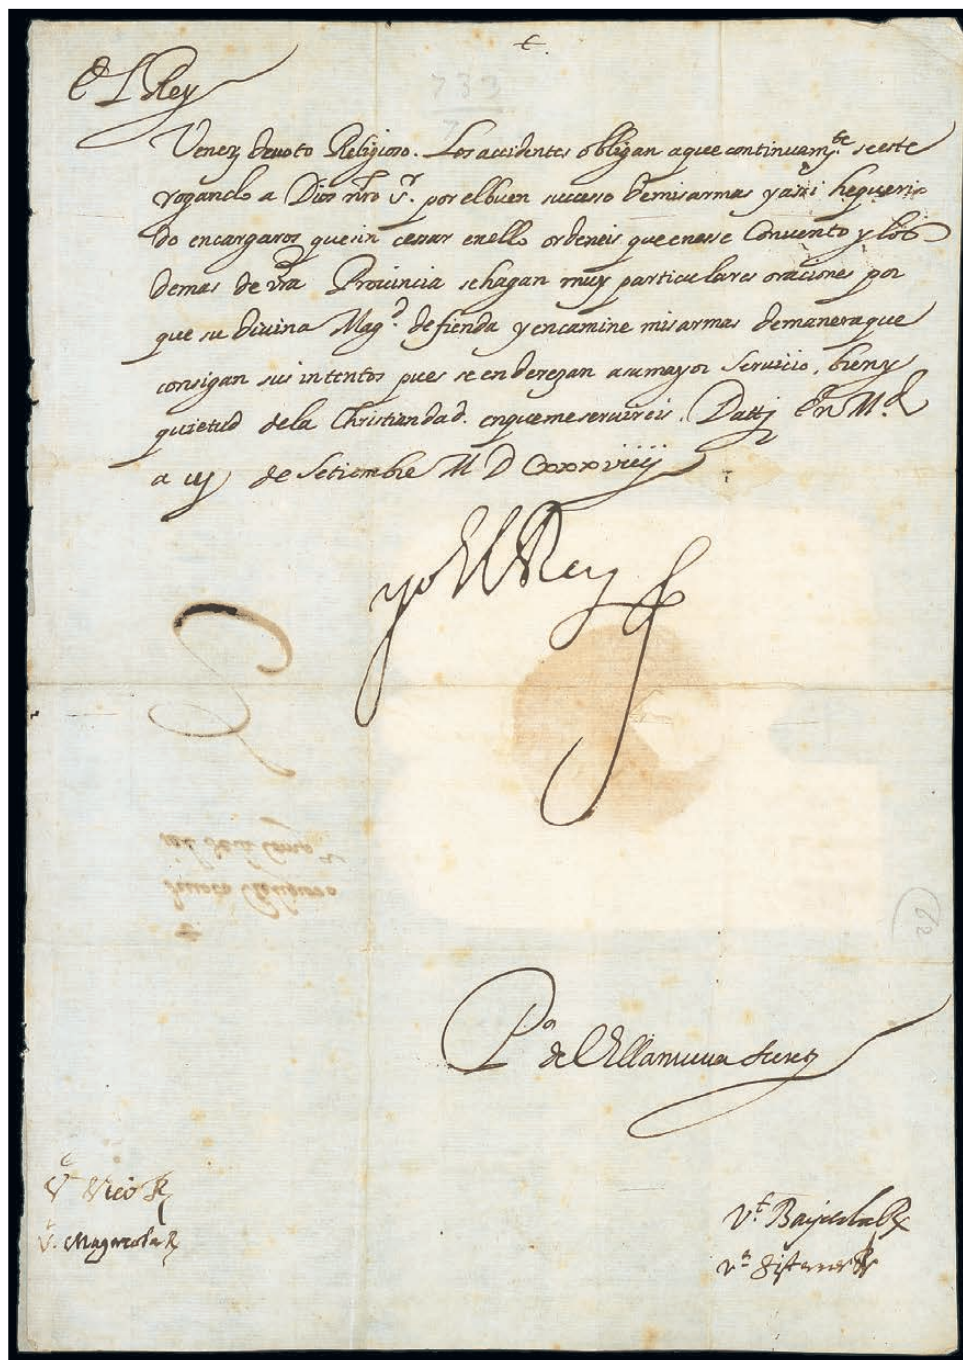 El Rey
733
7
Vener. devoto Religioso. Los accidentes obligan a que continuam.te se este
rogando a Dios nro S.r por el buen suceso de mis armas y assi he queri-
do encargaros que sin cessar en ello ordeneis que en esse Convento y los
demas de vra Provincia se hagan muy particulares oraciones por
que su divina Mag.d defienda y encamine mis armas de manera que
consigan sus intentos pues se enderezan a su mayor servicio, bien y
quietud de la Christiandad. en que me servireis. Datt en M.d
a iij de Setiembre M D CxxxViiij
yo El Rey
devoto Religioso
P.o de Villanueva Secret
62
V.t Vico R
V. Magarola R
V.t Bayetola R
V.t Sisternes R